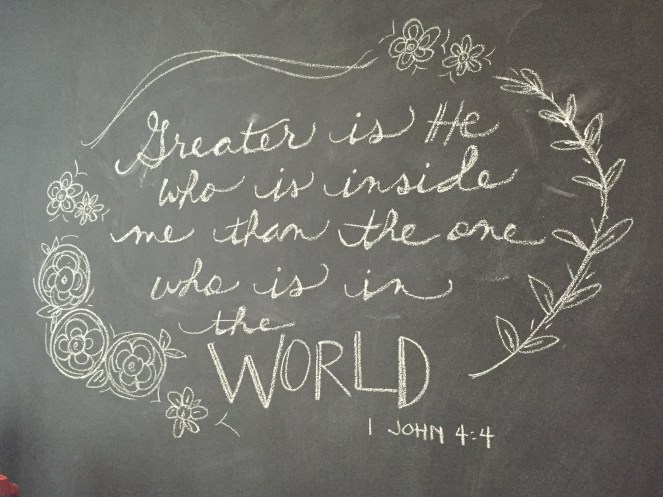 Greater is He
who is inside
me than the one
who is in
the
WORLD
1 JOHN 4:4